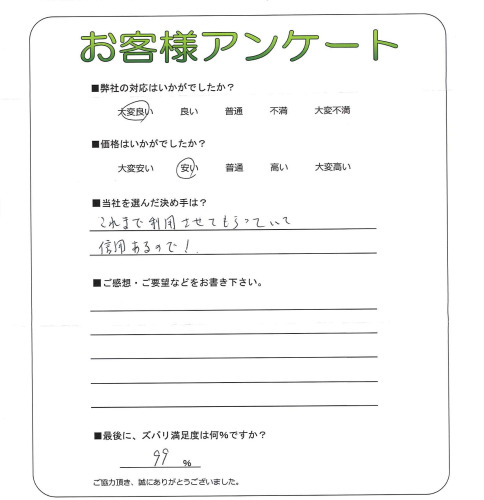 お客様アンケート
■弊社の対応はいかがでしたか？
大変良い 良い 普通 不満 大変不満
■価格はいかがでしたか？
大変安い 安い 普通 高い 大変高い
■当社を選んだ決め手は？
これまで利用させてもらっていて
信用あるので！.
■ご感想・ご要望などをお書き下さい。
■最後に、ズバリ満足度は何%ですか？
99 %
ご協力頂き、誠にありがとうございました。